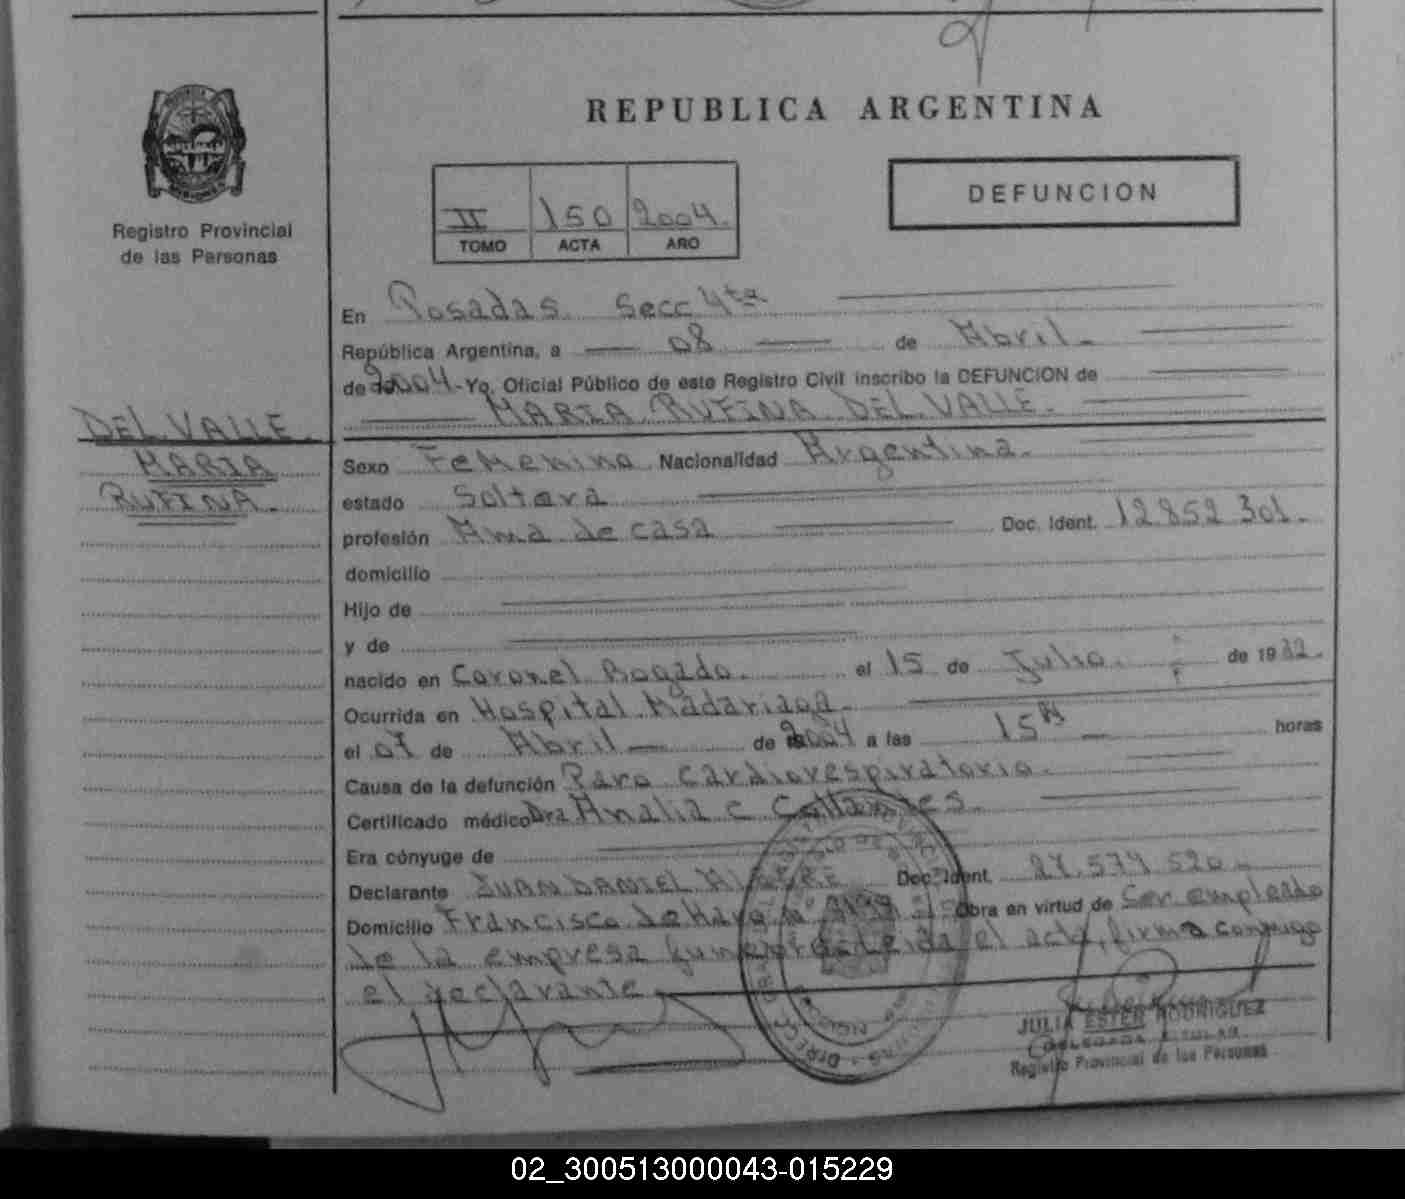 REPUBLICA ARGENTINA
DEFUNCION
II 150 2004.
TOMO ACTA AÑO
Registro Provincial
de las Personas
DEL VALLE
MARIA
RUFINA.
En Posadas Secc 4ta
República Argentina, a 08 de Abril.
de 2004.- Yo, Oficial Público de este Registro Civil inscribo la DEFUNCION de
MARIA RUFINA DEL VALLE.
Sexo Femenino Nacionalidad Argentina.
estado Soltera
profesión Ama de casa Doc. Ident. 12852301.
domicilio
Hijo de
y de
nacido en Coronel Bogado. el 15 de Julio. de 19
Ocurrida en Hospital Madariaga.
el 07 de Abril de 2004 a las 15 horas
Causa de la defunción Paro cardiorespiratorio.
Certificado médico Dra Analia C
Era cónyuge de
Declarante JUAN DANIEL Doc. Ident.
Domicilio Francisco de Haro Obra en virtud de Ser empleado
de la empresa el acta, firma conmigo
el declarante
JULIA ESTER RODRIGUEZ
DELEGADA TITULAR
Registro Provincial de las Personas
02_300513000043-015229